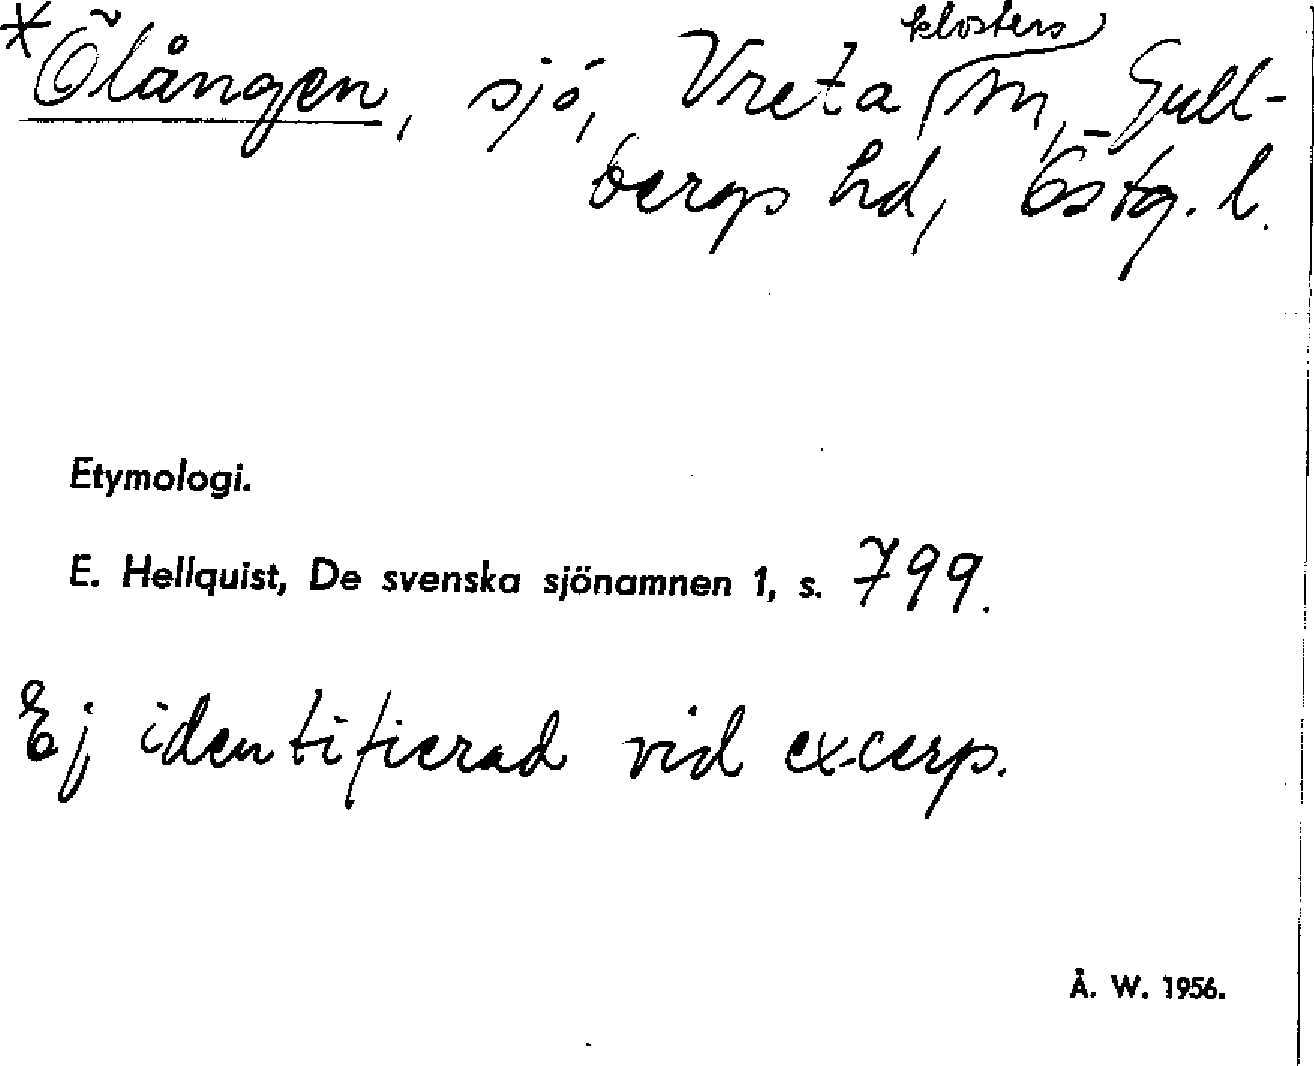 *Ölången, sjö, Vreta klosters sn, Gull-
bergs hd, Östg. l.
Etymologi.
E. Hellquist, De svenska sjönamnen 1, s. 799.
Ej identifierad vid excerp.
Å. W. 1956.